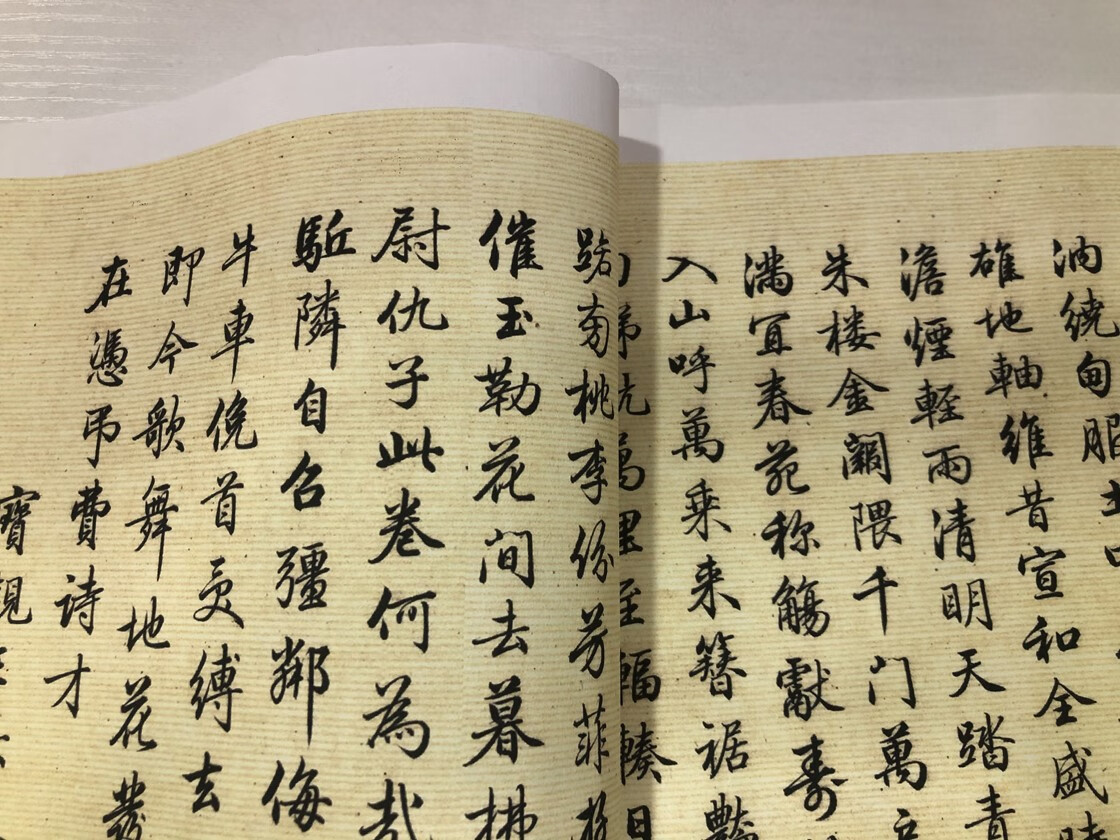 汭繞甸服
雄地軸維昔宣和全盛時
澹煙輕雨清明天踏青
朱楼金闕隈千门萬户
满宜春苑称觴獻寿
入山呼萬乘来簪裾艷
萬里至輻輳日
踏菊桃李份芳菲
催玉勒花间去暮拂
尉仇子此卷何為哉
駈隣自召彊鄰侮
牛車俛首受縛去
即今歌舞地花發
在憑弔費詩才
寶視